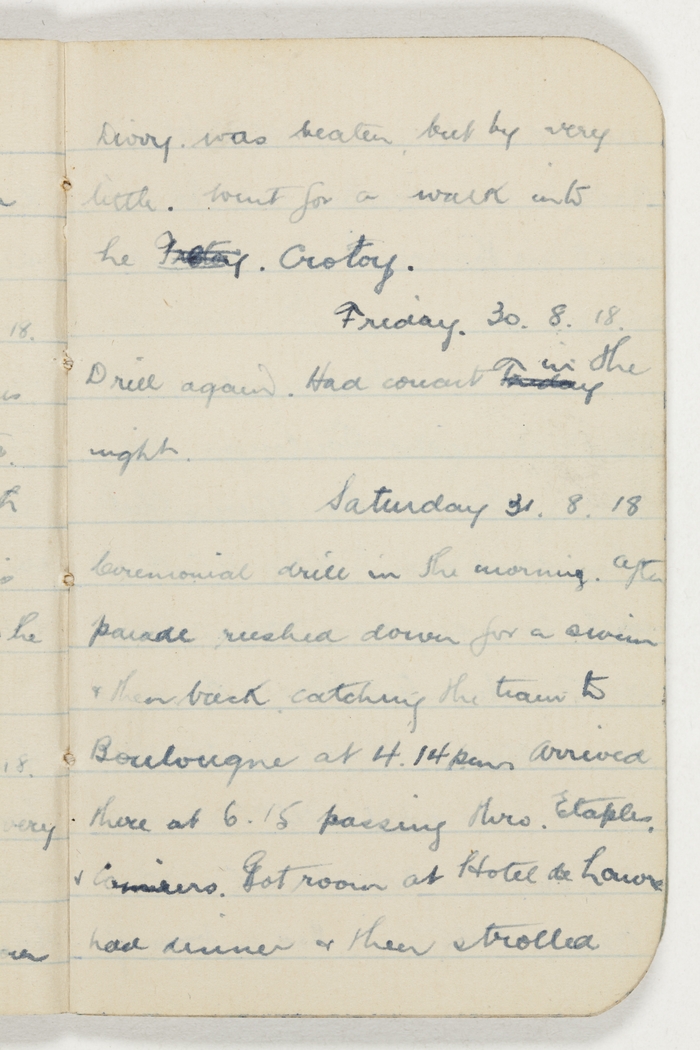 Divvy. was beaten but by very
little. Went for a walk into
he Crotoy.
Friday. 30. 8. 18.
Drill again. Had concert in the
night.
Saturday 31. 8. 18
Ceremonial drill in the morning. After
parade rushed down for a swim
& then back catching the train to
Boulougne at 4.14 pm Arrived
there at 6.15 passing thro. Etaples,
& Camiers. Got room at Hotel de
had dinner & then strolled
18.
he
18.
very